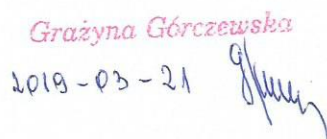 Grażyna Górczewska
2019-03-21